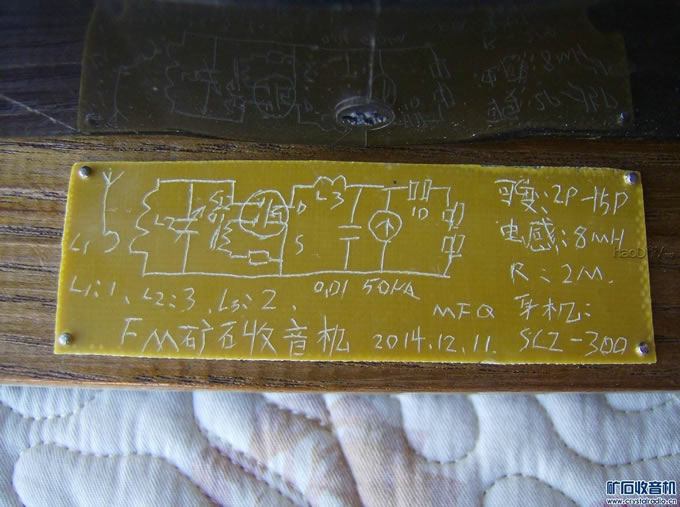 可变:2P-15P
L1 L2 G1 D L3 1D
电感:8MH
S
R:2M.
L1:1、L2:3、L3:2、 0.01 50UA
MFQ 耳机:
FM矿石收音机 2014.12.11. SCZ-300
矿石收音机
www.crystalradio.cn